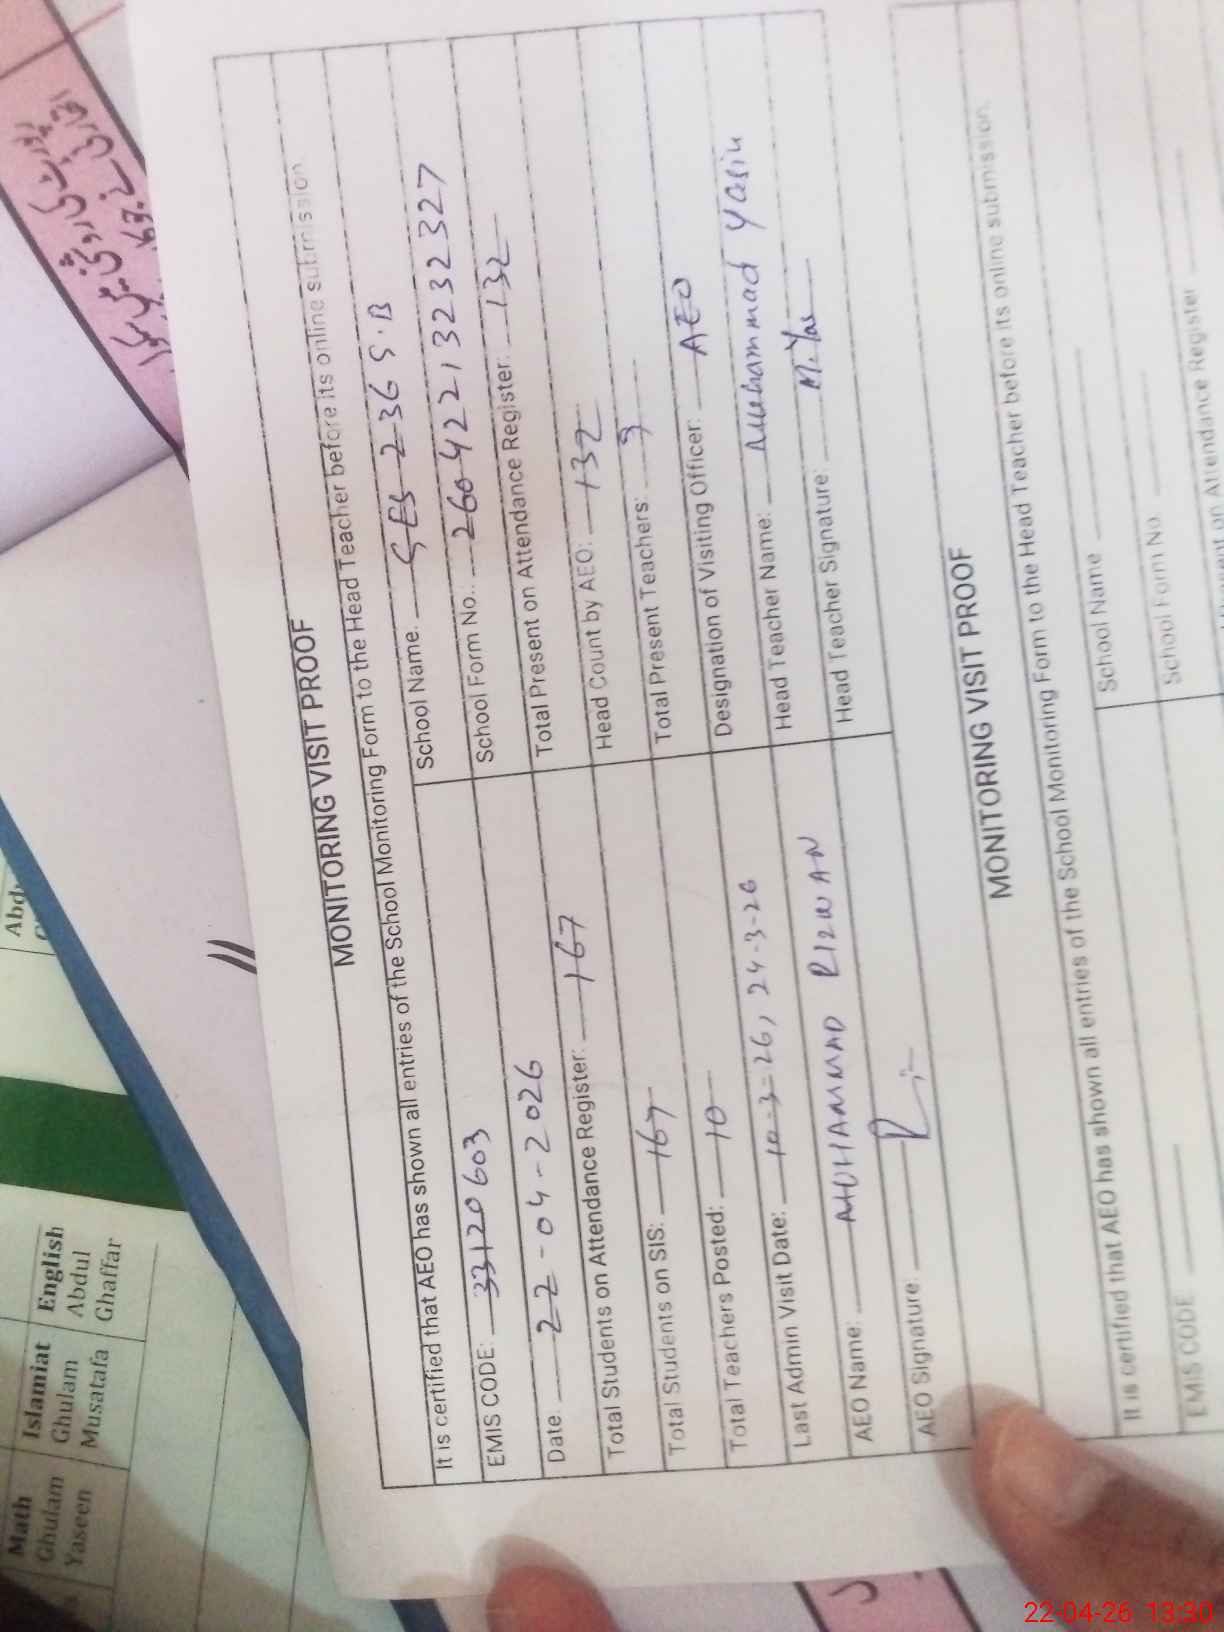 MONITORING VISIT PROOF
It is certified that AEO has shown all entries of the School Monitoring Form to the Head Teacher before its online submission
EMIS CODE: 33120603
School Name. GES 236 S.B
Date. 22-04-2026
School Form No.: 260422132323 27
Total Students on Attendance Register: 167
Total Present on Attendance Register: 132
Total Students on SIS: 167
Head Count by AEO: 132
Total Teachers Posted: 10
Total Present Teachers: 9
Last Admin Visit Date: 10-3-26, 24-3-26
Designation of Visiting Officer: AEO
AEO Name: MUHAMMAD RIZWAN
Head Teacher Name: Muhammad Yasin
AEO Signature:
Head Teacher Signature: M.Yas
MONITORING VISIT PROOF
It is certified that AEO has shown all entries of the School Monitoring Form to the Head Teacher before its online submission.
EMIS CODE
School Name
School Form No.
on Attendance Register
Math
Ghulam
Yaseen
Islamiat
Ghulam
Musatafa
English
Abdul
Ghaffar
22-04-26 13:30